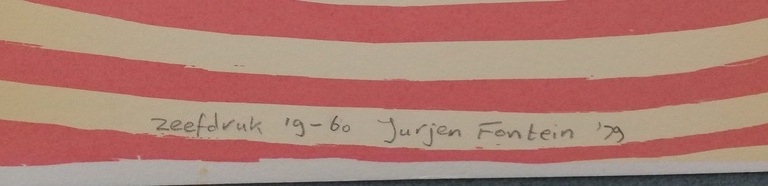 zeefdruk '9-60 Jurjen Fontein '79